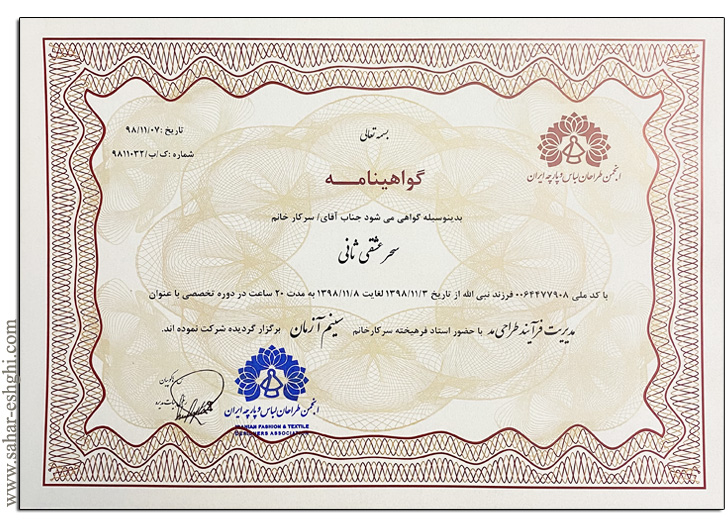 بسمه تعالی
تاریخ :۹۸/۱۱/۰۷
شماره :ک/ب/۹۸۱۱۰۳۲
انجمن طراحان لباس و پارچه ایران
گواهینامه
بدینوسیله گواهی می شود جناب آقای/ سرکار خانم
سحر عشقی ثانی
با کد ملی ۰۰۶۴۴۷۷۹۰۸ فرزند نبی الله از تاریخ ۱۳۹۸/۱۱/۳ لغایت ۱۳۹۸/۱۱/۸ به مدت ۲۰ ساعت در دوره تخصصی با عنوان
مدیریت فرآیند طراحی مد با حضور استاد فرهیخته سرکارخانم سینم آرمان برگزار گردیده شرکت نموده اند.
انجمن طراحان لباس و پارچه ایران
IRANIAN FASHION & TEXTILE
DESIGNERS ASSOCIATION
www.sahar-eshghi.com